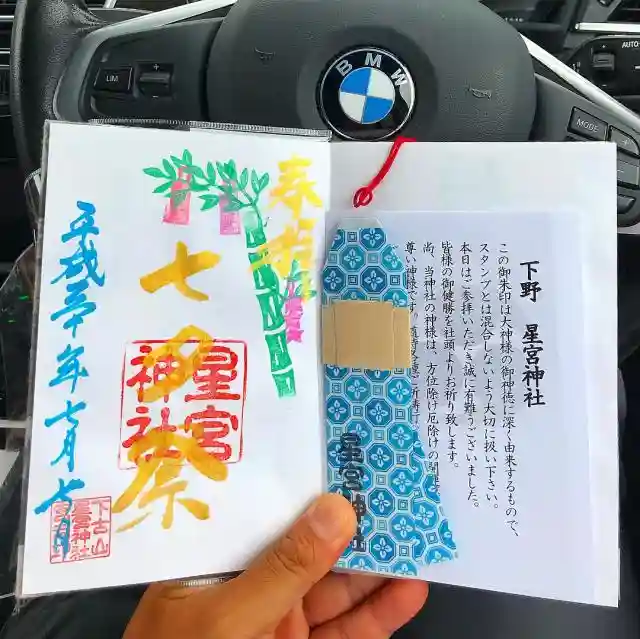 BMW
LIM
MODE
AUTO
奉拝
七夕祭
星宮神社
平成三十年七月七日
下古山
星宮神社
下野 星宮神社
この御朱印は大神様の御神徳に深く由来するもので、
スタンプとは混合しないよう大切に扱い下さい。
本日はご参拝いただき誠に有難うございました。
皆様の御健勝を社頭よりお祈り致します。
尚、当神社の神様は、方位除け厄除けの開
尊い神様です。
星宮神社